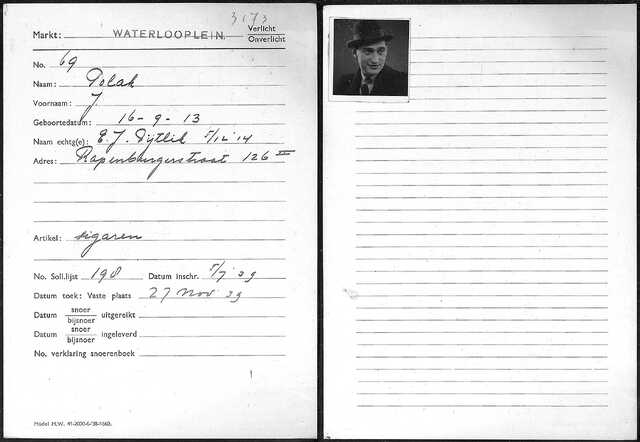 3173
Markt: WATERLOOPLEIN. Verlicht
Onverlicht
No. 69
Naam: Polak
Voornaam: J
Geboortedatum: 16-9-13
Naam echtg(e): E.J. Dijtlid 5/12 '14
Adres: Rapenburgerstraat 126 II
Artikel: sigaren
No. Soll.lijst 198 Datum inschr. 5/7 39
Datum toek: Vaste plaats 27 Nov 39
Datum snoer uitgereikt
bijsnoer
Datum snoer ingeleverd
bijsnoer
No. verklaring snoerenboek
Model H.W.